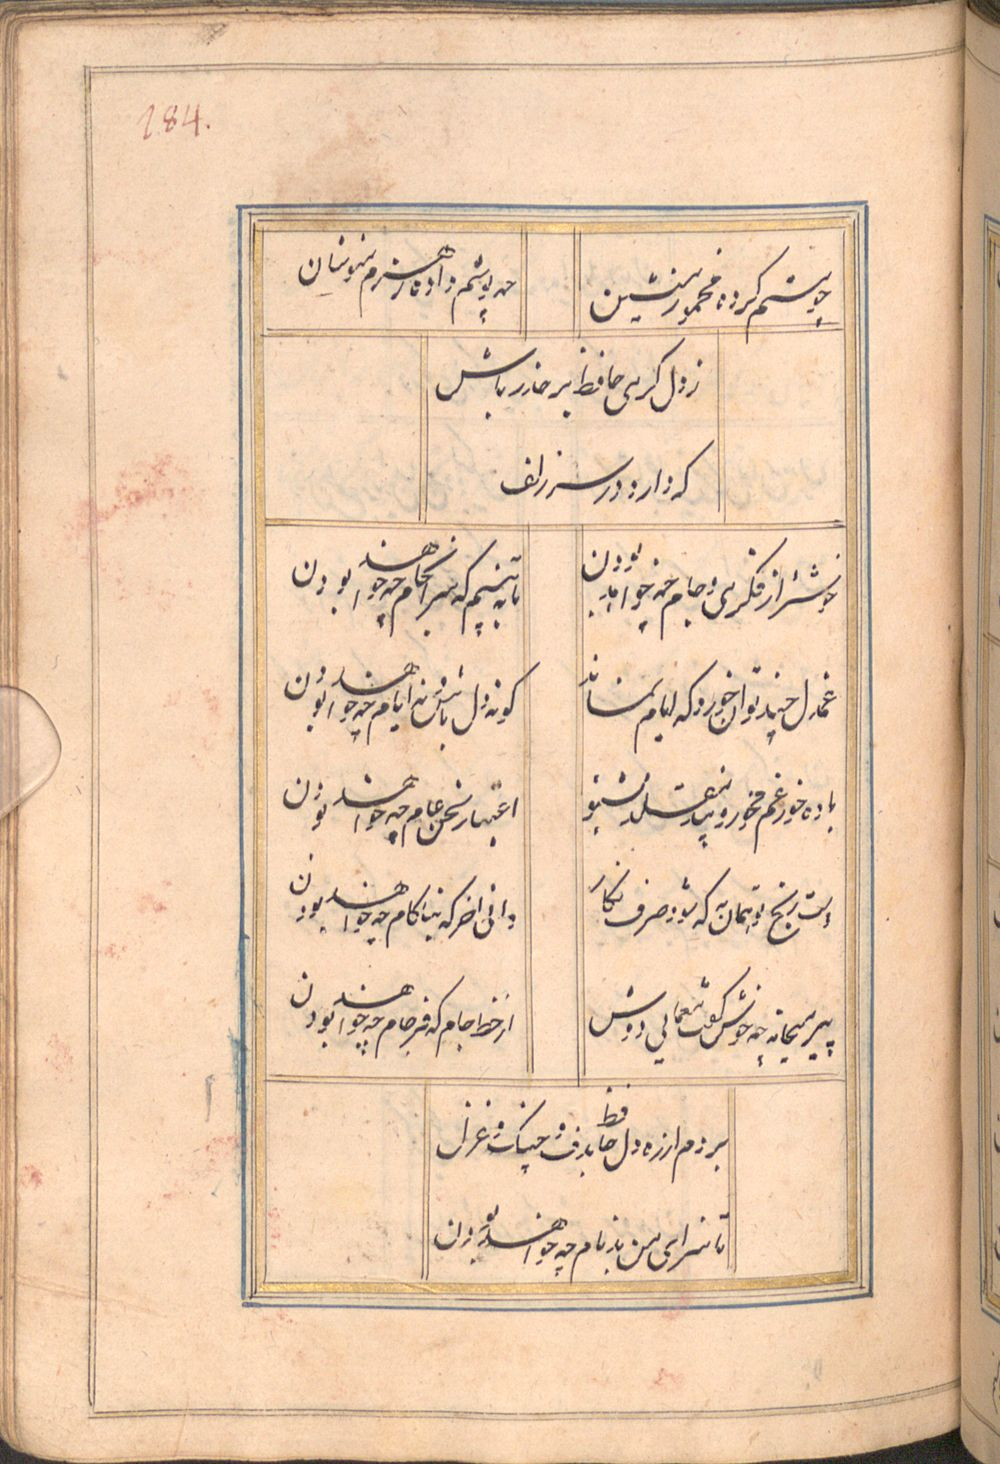 184.
چو چشمم کرده مخمور منشین
چه پوشم داده زهرم منوشان
ز دل گرمی حافظ بر حذر باش
که دارد در سر زلف
خوشتر از فکر می و جام چه خواهد بودن
تا ببینیم که سرانجام چه خواهد بودن
غم دل چند توان خورد که ایام نماند
گو نه دل باش نه ایام چه خواهد بودن
باده خور غم مخور و پند مقلد مشنو
اعتبار سخن عام چه خواهد بودن
دست رنج تو همان به که شود صرف نگار
دانی آخر که بناکام چه خواهد بودن
پیر میخانه چه خوش گفت معمایی دوش
از خط جام که فرجام چه خواهد بودن
بردم از ره دل حافظ بدف و چنگ و غزل
تا سزای من بدنام چه خواهد بودن